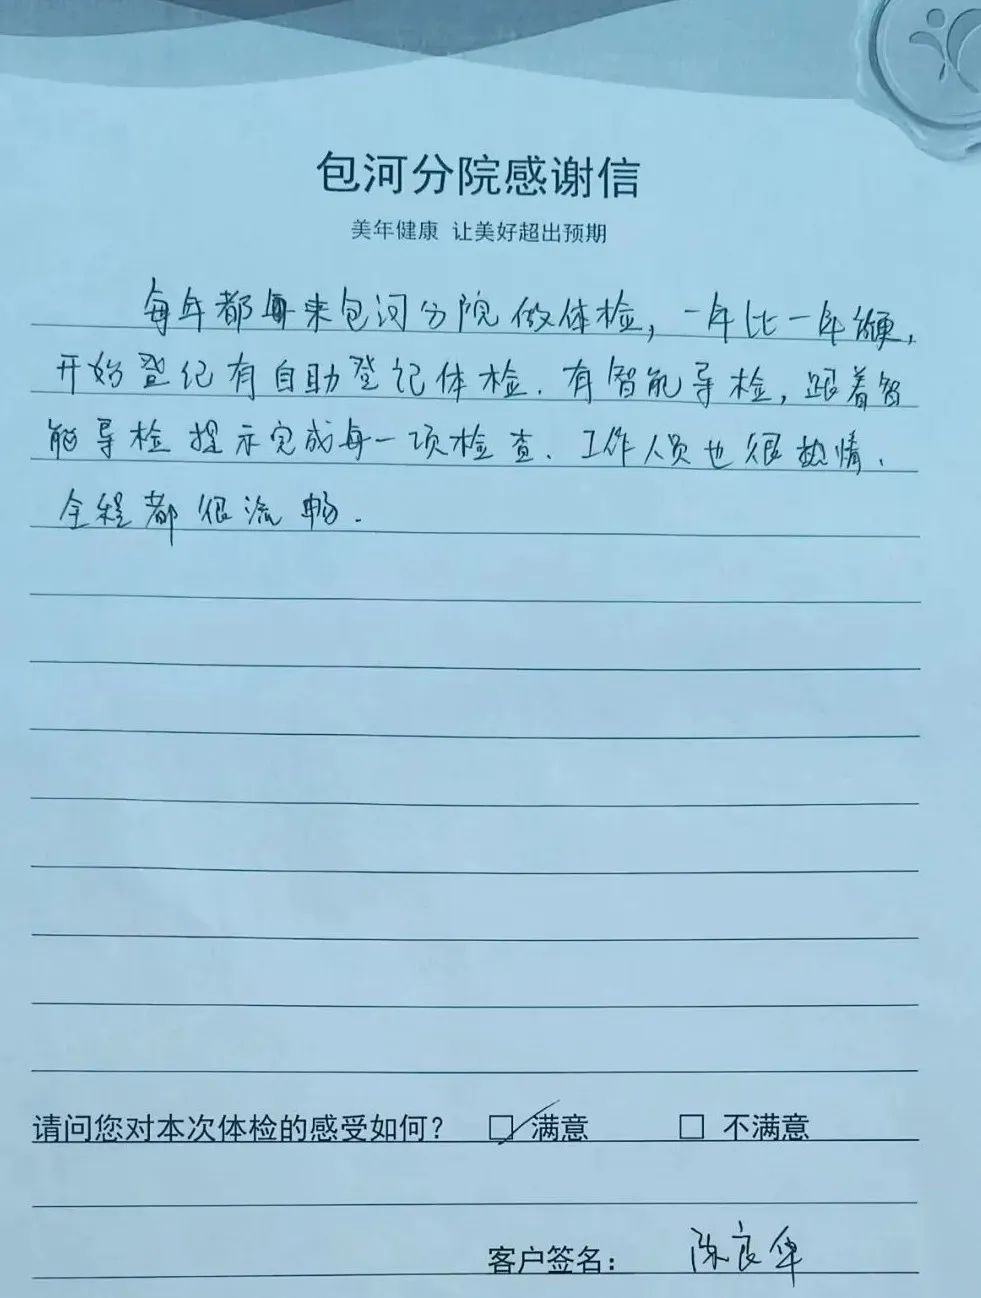 包河分院感谢信
美年健康 让美好超出预期
每年都来包河分院做体检，一年比一年便，
开始登记有自助登记体检．有智能导检，跟着智
能导检提示完成每一项检查．工作人员也很热情、
全程都很流畅．
请问您对本次体检的感受如何？ □ 满意 □ 不满意
客户签名： 陈良华